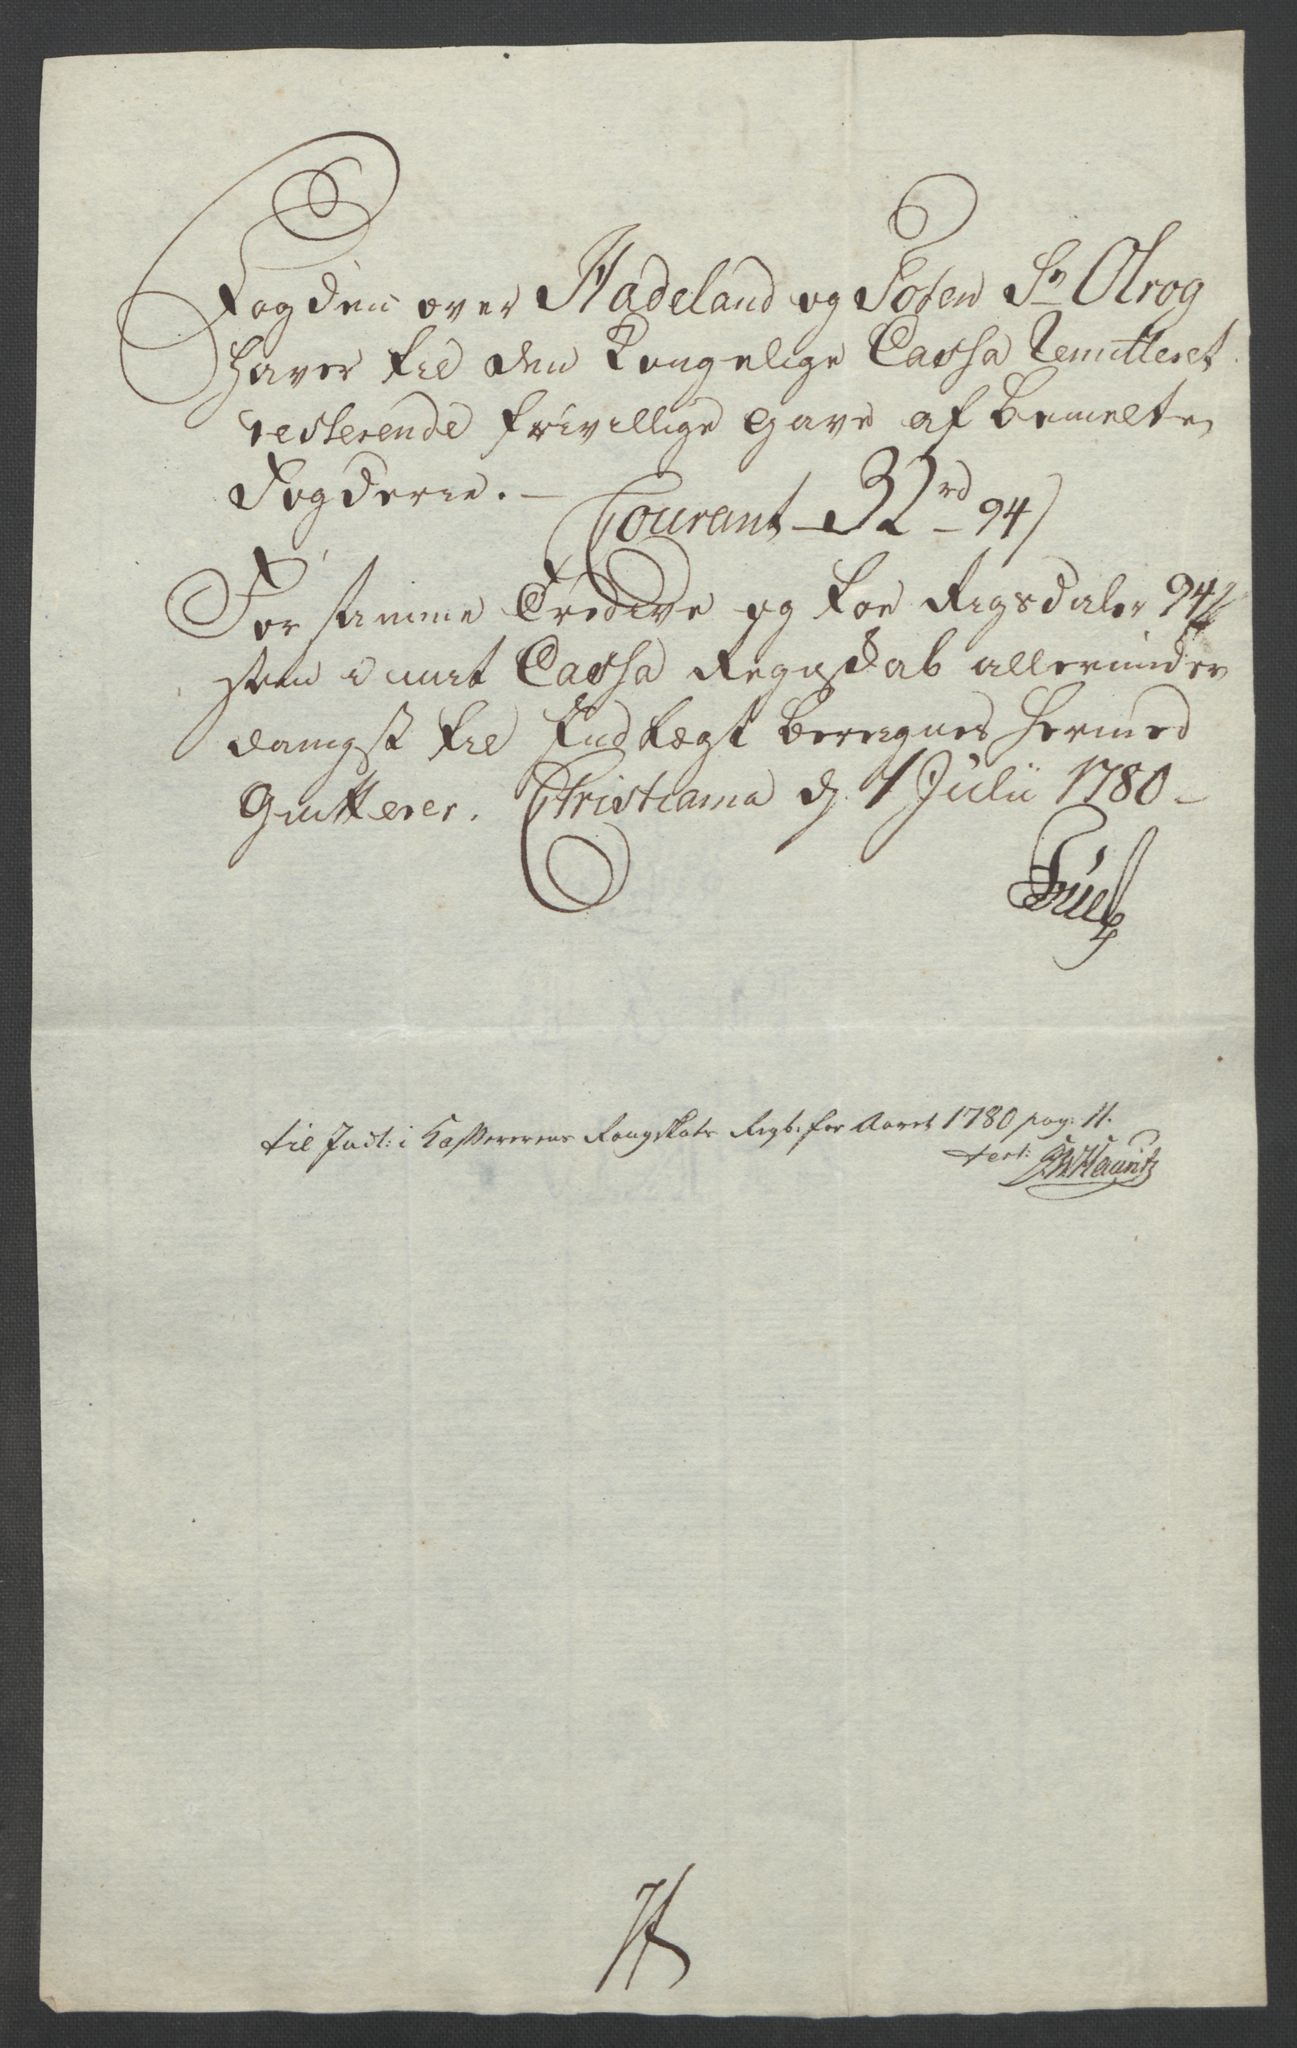 Fogden over Hadeland og Toten Sr. Olrog
haver til den Kongelige Cassa Remitteret
resterende frivillige Gave af bemelte
Fogderie. —
Courant — 32 rd — 94 ſ
For samme Tredive og toe Rigsdaler 94 ſ
som i mit Cassa Regnskab allerunder
danigst til Indtægt beregnes hermed
Qvitterer. Christiania d. 1 Julii 1780 —
til Indt: i Kassererens Rangskats Regb: for Aaret 1780 pag: 11.
test: